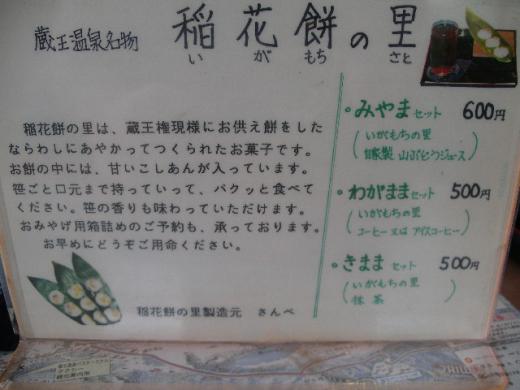 蔵王温泉名物 稲花餅の里
いがもち さと
稲花餅の里は、蔵王権現様にお供え餅をした
ならわしにあやかってつくられたお菓子です。
お餅の中には、甘いこしあんが入っています。
笹ごと口元まで持っていって、パクッと食べて
ください。笹の香りも味わっていただけます。
おみやげ用箱詰めのご予約も、承っております。
お早めにどうぞご用命ください。
稲花餅の里製造元 さんべ
みやまセット 600円
(いがもちの里
自家製 山ぶどうジュース)
わがままセット 500円
(いがもちの里
コーヒー又はアイスコーヒー)
きままセット 500円
(いがもちの里
抹茶)